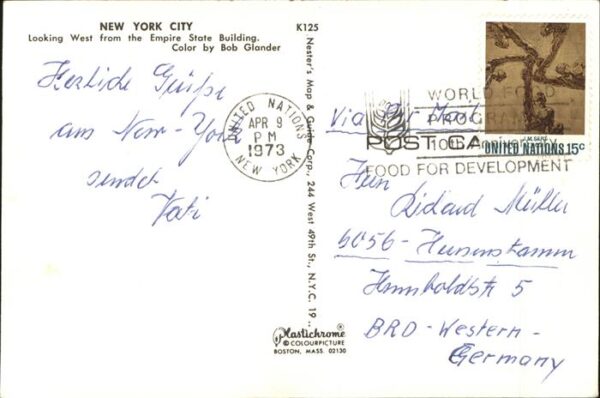 NEW YORK CITY
Looking West from the Empire State Building.
Color by Bob Glander
K125
Herzliche Grüße
aus New-York
sendet
Vati
UNITED NATIONS
NEW YORK
APR 9
PM
1973
WORLD FOOD
PROGRAMME
10th ANNIVERSARY
FOOD FOR DEVELOPMENT
UNITED NATIONS 15c
Nester's Map & Guide Corp., 244 West 49th St., N.Y.C. 19
Plastichrome
COLOURPICTURE
BOSTON, MASS. 02130
Via Air Mail
POST CA
Richard Müller
Humboldtstr 5
BRD-Western-
Germany